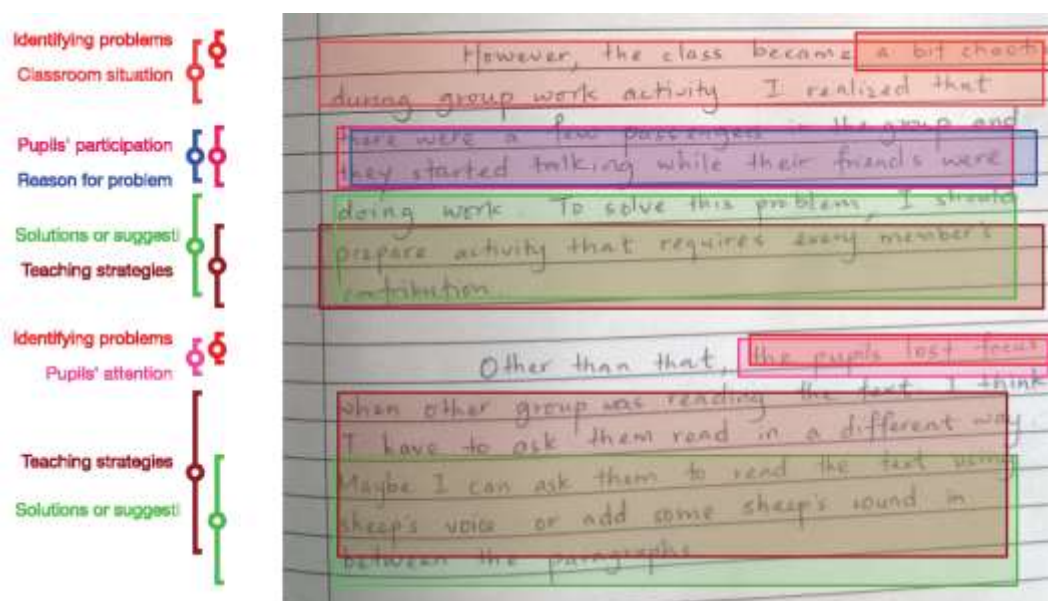 Identifying problems
Classroom situation
Pupils' participation
Reason for problem
Solutions or suggesti
Teaching strategies
Identifying problems
Pupils' attention
Teaching strategies
Solutions or suggesti
However, the class became a bit chaoti
during group work activity I realized that
there were a few passengers in the group and
they started talking while their friends were
doing work. To solve this problem, I should
prepare activity that requires every member's
contribution.
Other than that, the pupils lost focus
when other group was reading the text. I think
I have to ask them read in a different way.
Maybe I can ask them to read the text using
sheep's voice or add some sheep's sound in
between the paragraphs